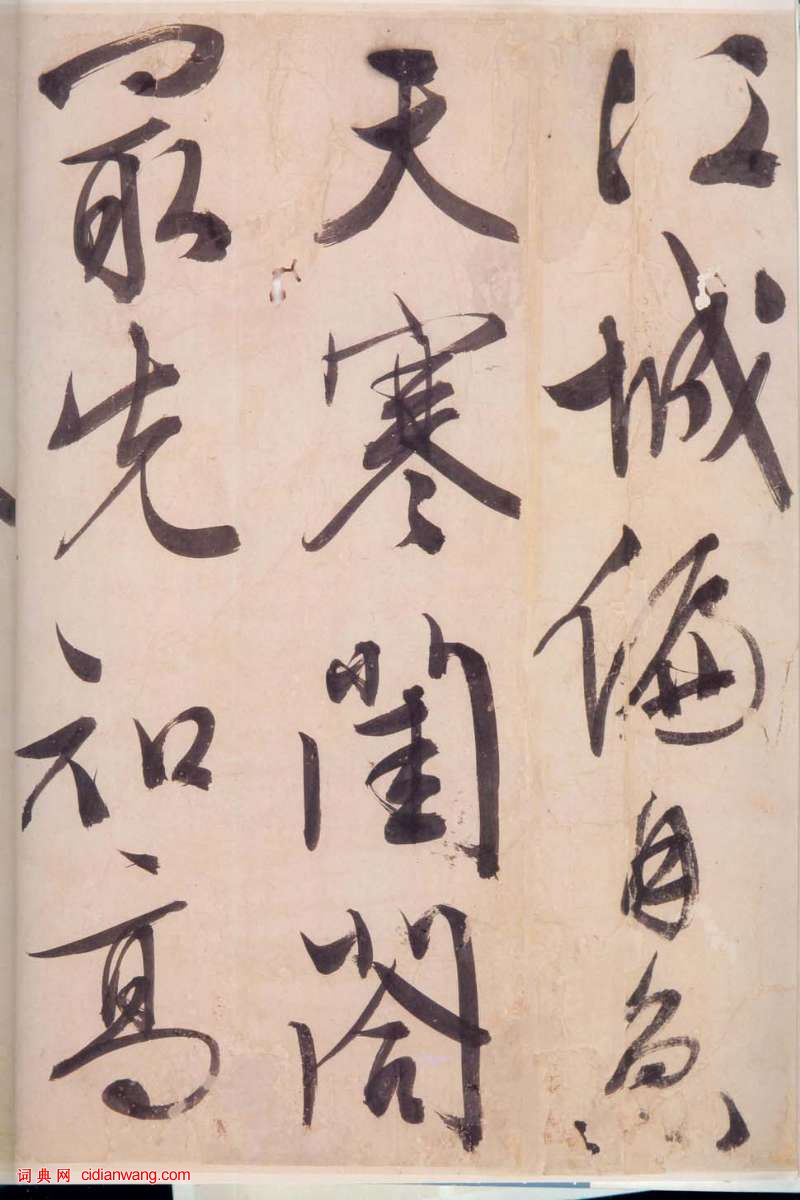 江城偏自急
天寒閨閣
最先知高
词典网 cidianwang.com